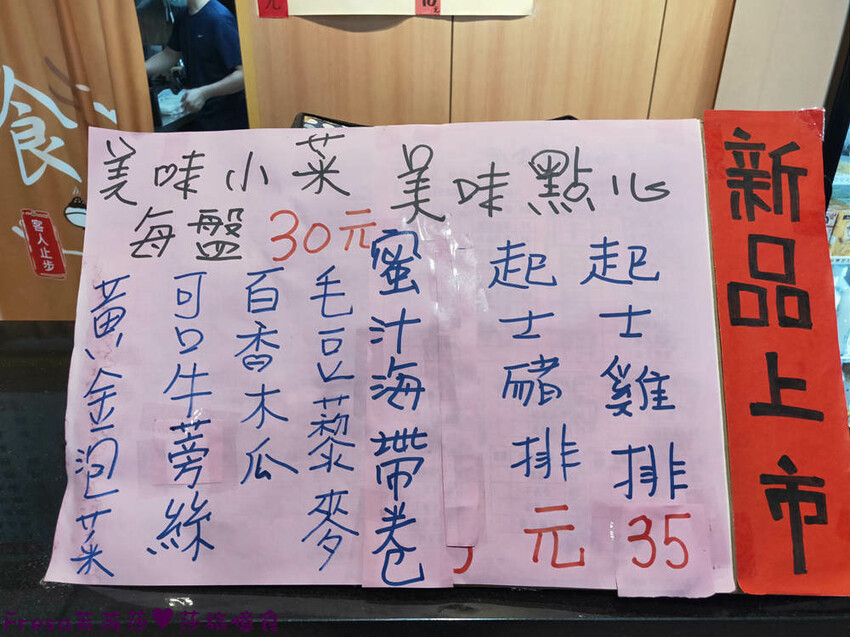 元
食
客人止步
美味小菜 美味點心
每盤30元
黃金泡菜
可口牛蒡絲
百香木瓜
毛豆藜麥
蜜汁海帶卷
起士豬排
起士雞排
元 35
新品上市